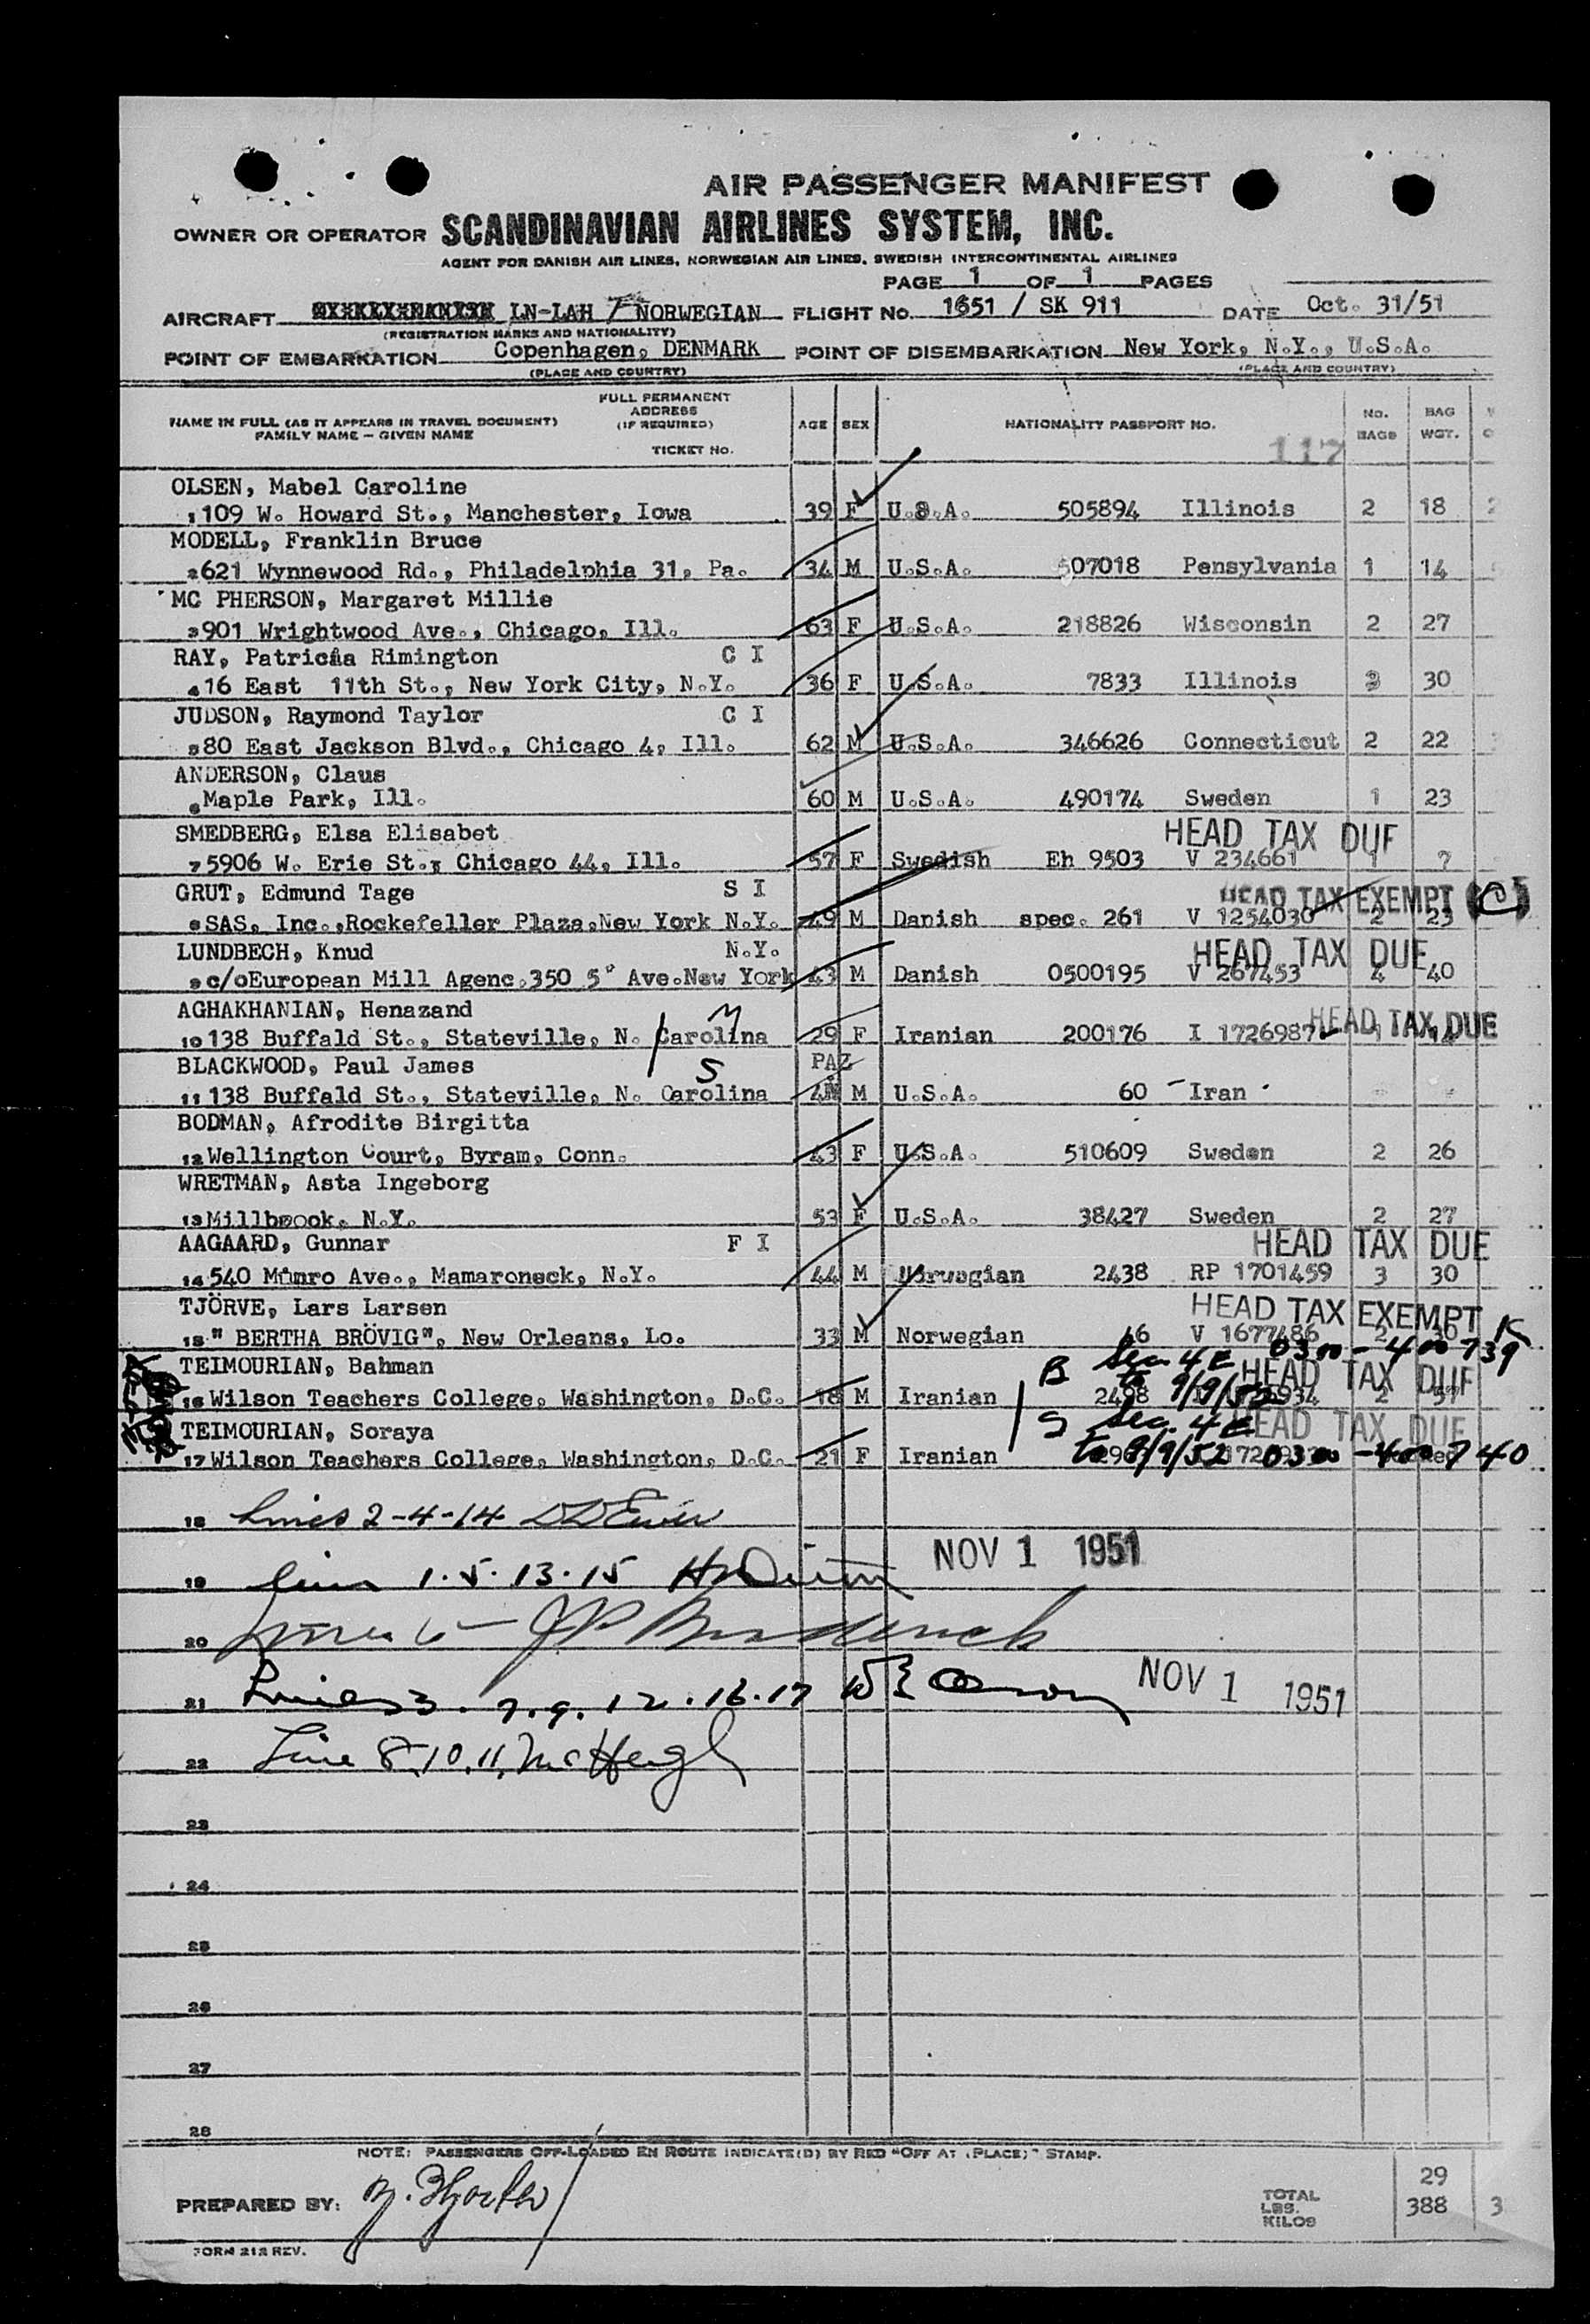 AIR PASSENGER MANIFEST
OWNER OR OPERATOR SCANDINAVIAN AIRLINES SYSTEM, INC.
AGENT FOR DANISH AIR LINES, NORWEGIAN AIR LINES, SWEDISH INTERCONTINENTAL AIRLINES
PAGE 1 OF 1 PAGES
AIRCRAFT LN-LAH / NORWEGIAN FLIGHT No. 1651 / SK 911 DATE Oct. 31/51
(REGISTRATION MARKS AND NATIONALITY)
POINT OF EMBARKATION Copenhagen, DENMARK POINT OF DISEMBARKATION New York, N.Y., U.S.A.
(PLACE AND COUNTRY) (PLACE AND COUNTRY)
NAME IN FULL (AS IT APPEARS IN TRAVEL DOCUMENT) FAMILY NAME – GIVEN NAME FULL PERMANENT ADDRESS (IF REQUIRED) TICKET No. AGE SEX NATIONALITY PASSPORT NO. No. BAGS BAG WGT.
117
OLSEN, Mabel Caroline
1 109 W. Howard St., Manchester, Iowa 39 F U.S.A. 505894 Illinois 2 18
MODELL, Franklin Bruce
2 621 Wynnewood Rd., Philadelphia 31, Pa. 34 M U.S.A. 507018 Pensylvania 1 14
MC PHERSON, Margaret Millie
3 901 Wrightwood Ave., Chicago, Ill. 63 F U.S.A. 218826 Wisconsin 2 27
RAY, Patricia Rimington C I
4 16 East 11th St., New York City, N.Y. 36 F U.S.A. 7833 Illinois 3 30
JUDSON, Raymond Taylor C I
5 80 East Jackson Blvd., Chicago 4, Ill. 62 M U.S.A. 346626 Connecticut 2 22
ANDERSON, Claus
6 Maple Park, Ill. 60 M U.S.A. 490174 Sweden 1 23
SMEDBERG, Elsa Elisabet HEAD TAX DUE
7 5906 W. Erie St., Chicago 44, Ill. 57 F Swedish Eh 9503 V 234661 1 7
GRUT, Edmund Tage S I HEAD TAX EXEMPT
8 SAS, Inc.,Rockefeller Plaza,New York N.Y. 49 M Danish spec. 261 V 1254030 2 23
LUNDBECH, Knud N.Y. HEAD TAX DUE
9 c/oEuropean Mill Agenc.350 5" Ave.New York 43 M Danish 0500195 V 267453 4 40
AGHAKHANIAN, Henazand M HEAD TAX DUE
10 138 Buffald St., Stateville, N. Carolina 29 F Iranian 200176 I 1726987 1 14
BLACKWOOD, Paul James S PAZ
11 138 Buffald St., Stateville, N. Carolina M U.S.A. 60 Iran
BODMAN, Afrodite Birgitta
12 Wellington Court, Byram, Conn. 43 F U.S.A. 510609 Sweden 2 26
WRETMAN, Asta Ingeborg
13 Millbrook, N.Y. 53 F U.S.A. 38427 Sweden 2 27
AAGAARD, Gunnar F I HEAD TAX DUE
14 540 Munro Ave., Mamaroneck, N.Y. 44 M Norwegian 2438 RP 1701459 3 30
TJÖRVE, Lars Larsen HEAD TAX EXEMPT
15 " BERTHA BRÖVIG", New Orleans, Lo. 33 M Norwegian 46 V 1677486 2 30 K
TEIMOURIAN, Bahman B Sec. 4E 0300-400739 HEAD TAX DUE
16 Wilson Teachers College, Washington, D.C. 18 M Iranian 2498 9/9/52 2
TEIMOURIAN, Soraya S Sec. 4E HEAD TAX DUE
17 Wilson Teachers College, Washington, D.C. 21 F Iranian to 9/9/52 0300-400740
18 Lines 2-4-14
19 Lines 1.5.13.15 NOV 1 1951
20
21 Lines 3.7.9.12.16.17 NOV 1 1951
22 Line 8,10,11, McHugh
23
24
25
26
27
28
NOTE: PASSENGERS OFF-LOADED EN ROUTE INDICATE(D) BY RED "OFF AT (PLACE)" STAMP.
PREPARED BY: TOTAL 29
LBS. KILOS 388 3
FORM 212 REV.